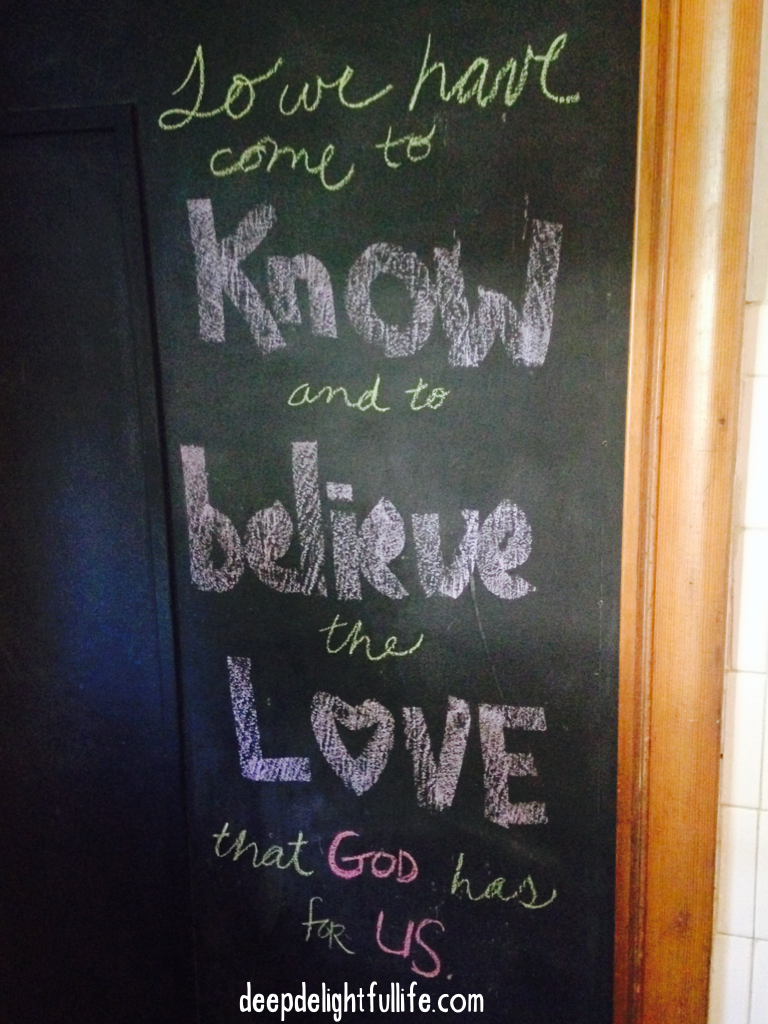 So we have
come to
Know
and to
believe
the
LOVE
that GOD has
for US.
deepdelightfullife.com